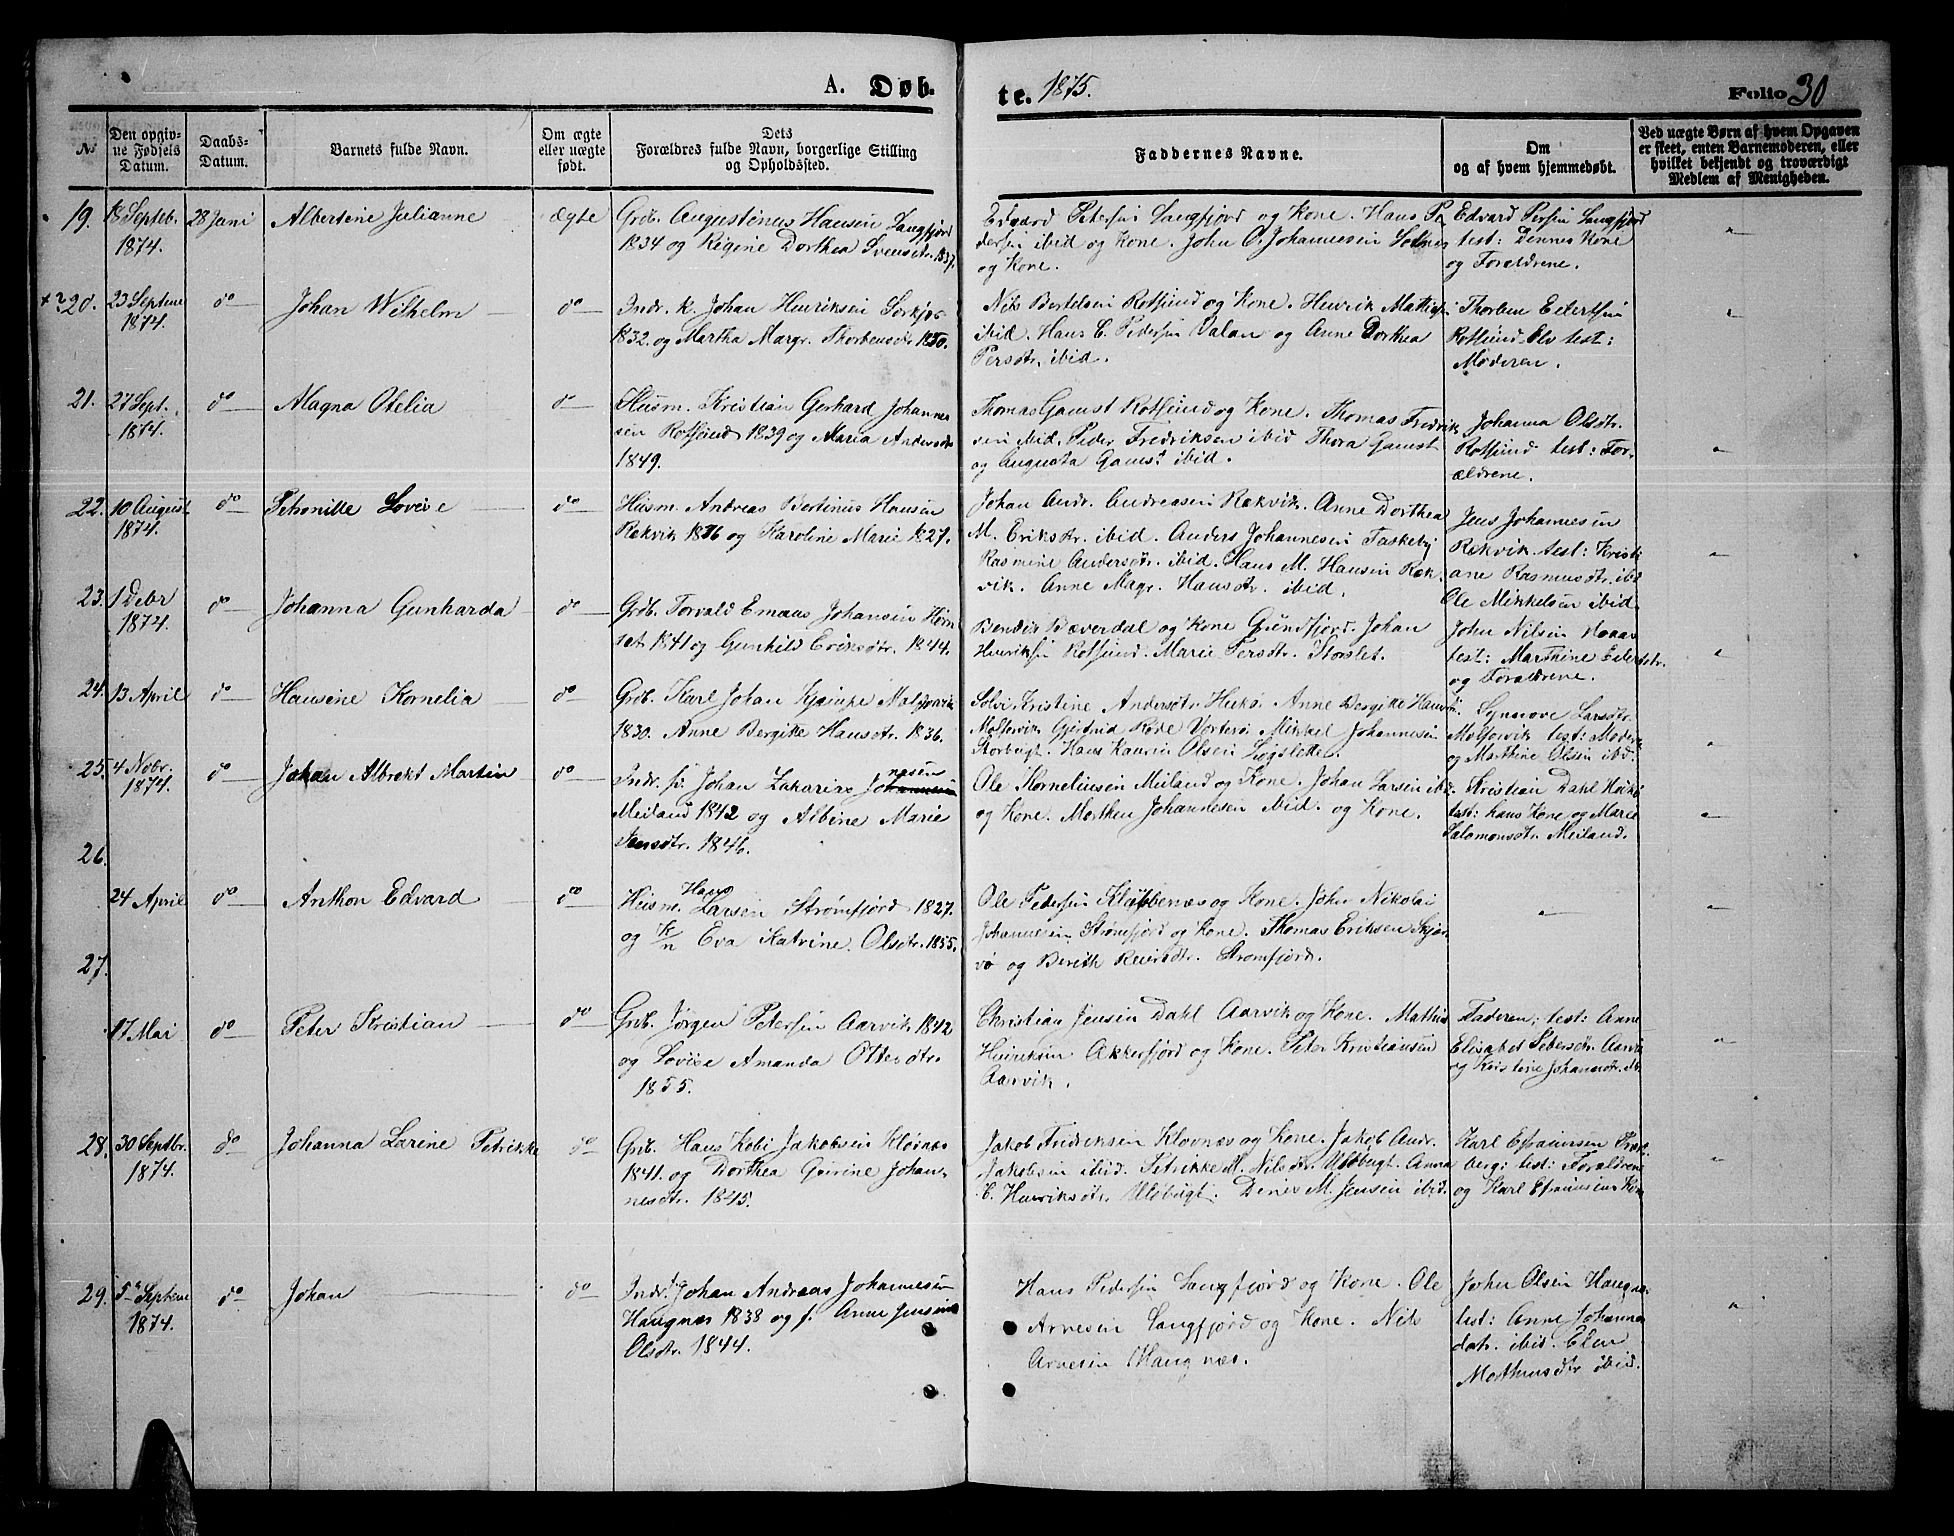 A. Døb- te. 1875. Folio 30
№
Den opgiv-
ne Fødsels
Datum.
Daabs-
Datum.
Barnets fulde Navn.
Om ægte
eller uægte
født.
Dets
Forældres fulde Navn, borgerlige Stilling
og Opholdssted.
Faddernes Navne.
Om
og af hvem hjemmedøbt.
Ved uægte Børn af hvem Opgaven
er skeet, enten Barnemoderen, eller
hvilket bekjendt og troværdigt
Medlem af Menigheden.
19. 18 Septeb. 28 Juni Albertine Julianne ægte
1874.
Grdb. Augustinus Hansen Langfjord
1834 og Regine Dorthea Svensdtr. 1837.
Edvard Petersen Langfjord og Kone. Hans Pe
dersen ibid og Kone. John O. Johannesen
og Kone.
Edvard Persen Langfjord
test: Dennes Kone
og Forældrene.
20. 23 Septem do Johan Wilhelm do
1874.
Indr. k. Johan Henriksen Sørkjos
1832. og Martha Margr. Thorbensdtr. 1850.
Nils Bertelsen Rotsund og Kone. Henrik Mathis
ibid. Hans C. Pedersen Valan og Anne Dorthea
Persdtr. ibid.
Thorben Eilertsen
Rotsund Elv test:
Moderen.
21. 27 Sept. do Magna Otelia do
1874.
Husm. Kristian Gerhard Johanne
sen Rotsund 1839 og Maria Andersdtr
1849.
Thomas Gamst Rotsund og Kone. Thomas Fredrik
sen ibid. Peder Fredriksen ibid Thora Gamst
og Augusta Gamst ibid.
Johanna Olsdtr.
Rotsund test: For-
ældrene.
22. 10 August do Petronille Lovise do
1874.
Husm. Andreas Bertinus Hansen
Rækvik 1836 og Karoline Marie 1827.
Johan Andr. Andreasen Rækvik. Anne Dorthea
M. Eriksdtr. ibid. Anders Johannesen Taskeby
Rasmine Andersdtr. ibid. Hans M. Hansen Ræk-
vik. Anne Magr. Hansdtr. ibid.
Jens Johannesen
Rækvik test: Kristi
ane Rasmusdtr. ibid
Ole Mikkelsen ibid.
23. 1 Debr do Johanna Gunharda do
1874.
Grdb. Torvald Emaus Johansen Ham
1841 og Gunhild Eriksdtr. 1844.
Bendix Bæverdal og Kone Grundfjord. Johan
Henriksen Rotsund. Marie Persdtr. Storslet.
John Nilsen
test: Marthine Eilertsdtr.
og Forældrene.
24. 13 April do Hansine Kornelia do
Grdb. Karl Johan Kjempe
1830. Anne Bergitte Hansdtr. 1836.
Solvi Kristine Andersdtr. Anne Bergitte Hansdtr.
Gjertrud Røde Vorterø. Mikkel Johannesen
Storbugt. Hans Laurin Olsen Løgslette.
Synnove Larsdtr.
test: Moder
og Marthine Olsen ibid.
25. 4 Nobr. do Johan Albrekt Martin do
1874.
Indr. p. Johan Zakarias Johannesen
Meiland 1842 og Albine Marie
Jensdtr. 1846.
Ole Korneliusen Meiland og Kone. Johan Larsen ibid
og Kone. Morthen Johannesen ibid. og Kone.
Kristian Dahl
test: hans Kone og Marie
Salomonsdtr. Meiland.
26.
24 April do Anthon Edvard do
Husm. Hans Larsen Strømfjord 1827.
og K/n Eva Katrine Olsdtr. 1855.
Ole Pedersen Klubbenes og Kone. John Nikolai
Johannesen Strømfjord og Kone. Thomas Eriksen Skjær-
vø og Berith Reiersdtr. Strømfjord.
27.
17 Mai do Peter Kristian do
Grdb. Jørgen Petersen Aarvik 1842
og Lovise Amanda Ottersdtr.
1855.
Christian Jensen Dahl Aarvik og Kone. Mathis
Henriksen Akkerfjord og Kone. Peter Kristiansen
Aarvik.
Faderen; test: Anne
Elisabet Pedersdtr. Aarvik
og Kristine Johansdtr. ib.
28. 30 Septbr. do Johanna Larine Petrikke do
1874.
Grdb. Hans Kobi Jakobsen Klovnæs
1841. og Dorthea Gurine Johan-
nesdtr. 1845.
Jakob Fredriksen Klovnæs og Kone. Jakob Andr.
Jakobsen ibid. Petrikke M. Nilsdtr. Uløbugt. Anna
C. Henriksdtr. Uløbugt. Denis M. Jensen ibid.
Karl Efraimsen
berg: test: Forældrene
og Karl Efraimsens Kone
29. 5 Septem do Johan do
1874.
Indr. Johan Andreas Johannesen
Haugnæs 1838 og f. Anne Jensine
Olsdtr. 1844.
Hans Pedersen Langfjord og Kone. Ole
Arnesen Langfjord og Kone. Nils
Arnesen Haugnæs.
John Olsen Haugnæ.
test: Anne Johanna
datr. ibid. Elen
Mathiasdtr ibid.